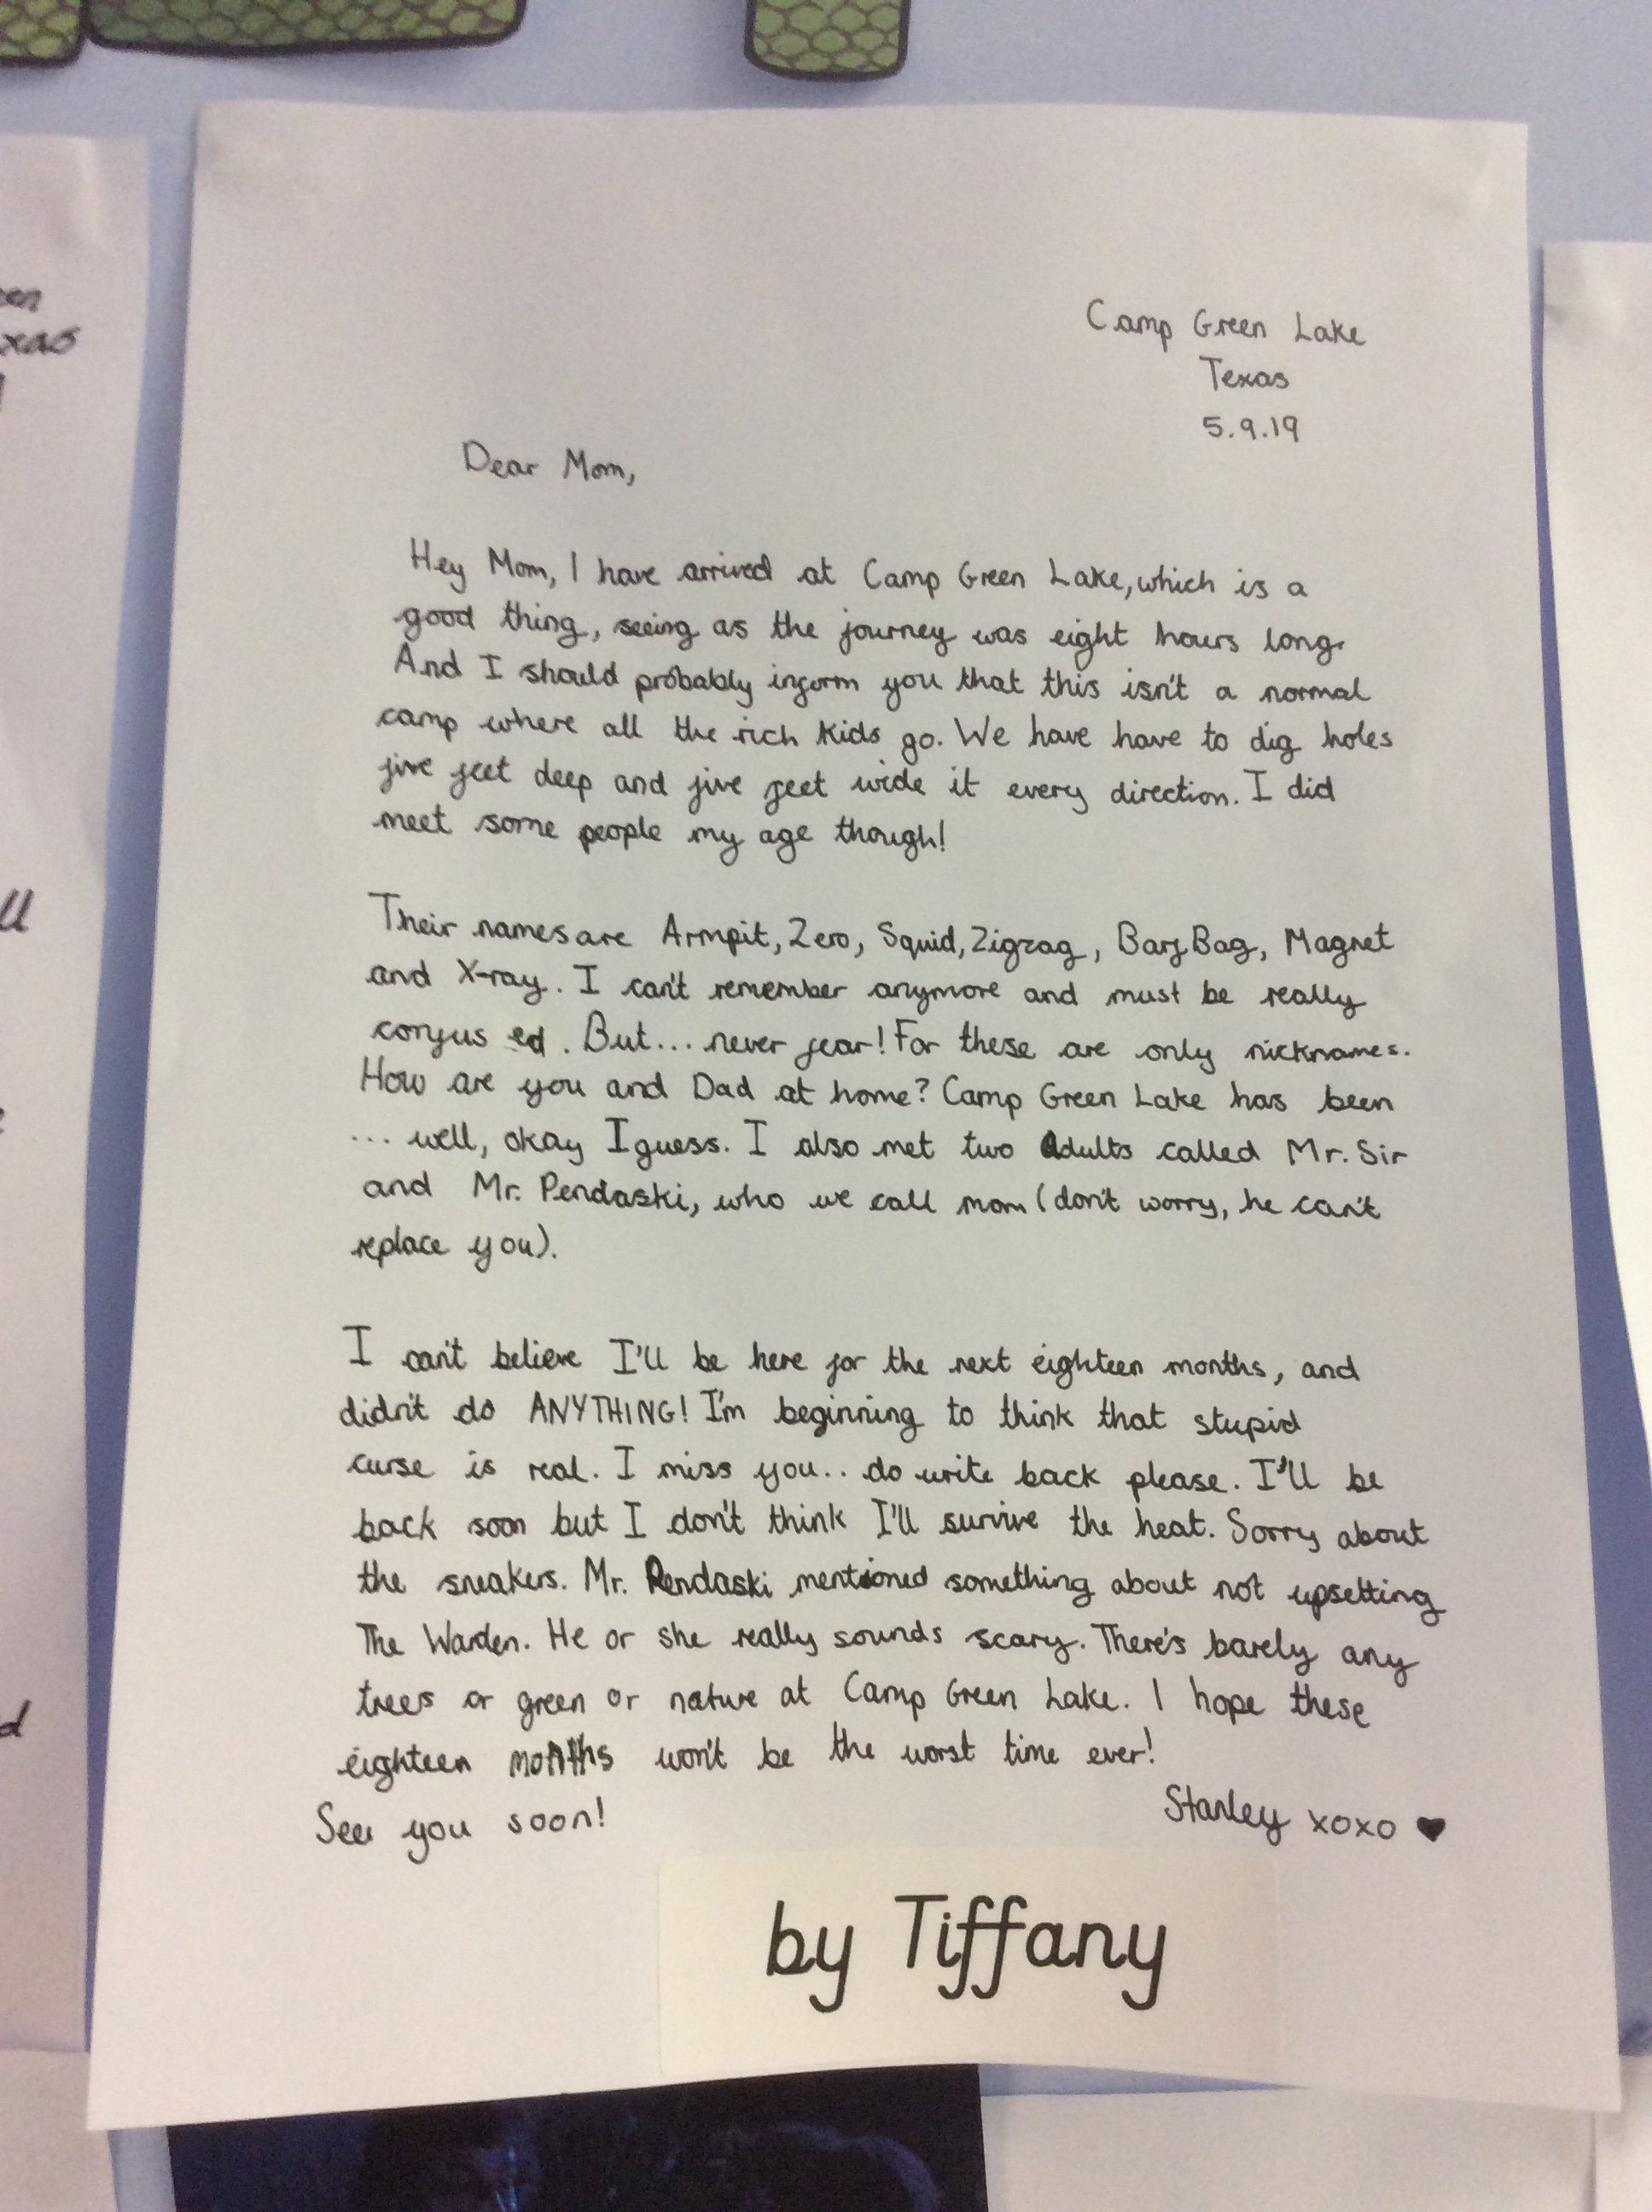 Camp Green Lake
Texas
5.9.19
Dear Mom,
Hey Mom, I have arrived at Camp Green Lake, which is a
good thing, seeing as the journey was eight hours long.
And I should probably inform you that this isn't a normal
camp where all the rich kids go. We have have to dig holes
five feet deep and five feet wide it every direction. I did
meet some people my age though!
Their names are Armpit, Zero, Squid, Zigzag, Barf Bag, Magnet
and X-ray. I can't remember anymore and must be really
confus ed. But... never fear! For these are only nicknames.
How are you and Dad at home? Camp Green Lake has been
... well, okay I guess. I also met two Adults called Mr. Sir
and Mr. Pendaski, who we call mom (don't worry, he can't
replace you).
I can't believe I'll be here for the next eighteen months, and
didn't do ANYTHING! I'm beginning to think that stupid
curse is real. I miss you.. do write back please. I'll be
back soon but I don't think I'll survive the heat. Sorry about
the sneakers. Mr. Pendaski mentioned something about not upsetting
The Warden. He or she really sounds scary. There's barely any
trees or green or nature at Camp Green Lake. I hope these
eighteen months won't be the worst time ever!
See you soon!
Stanley xoxo ♥
by Tiffany